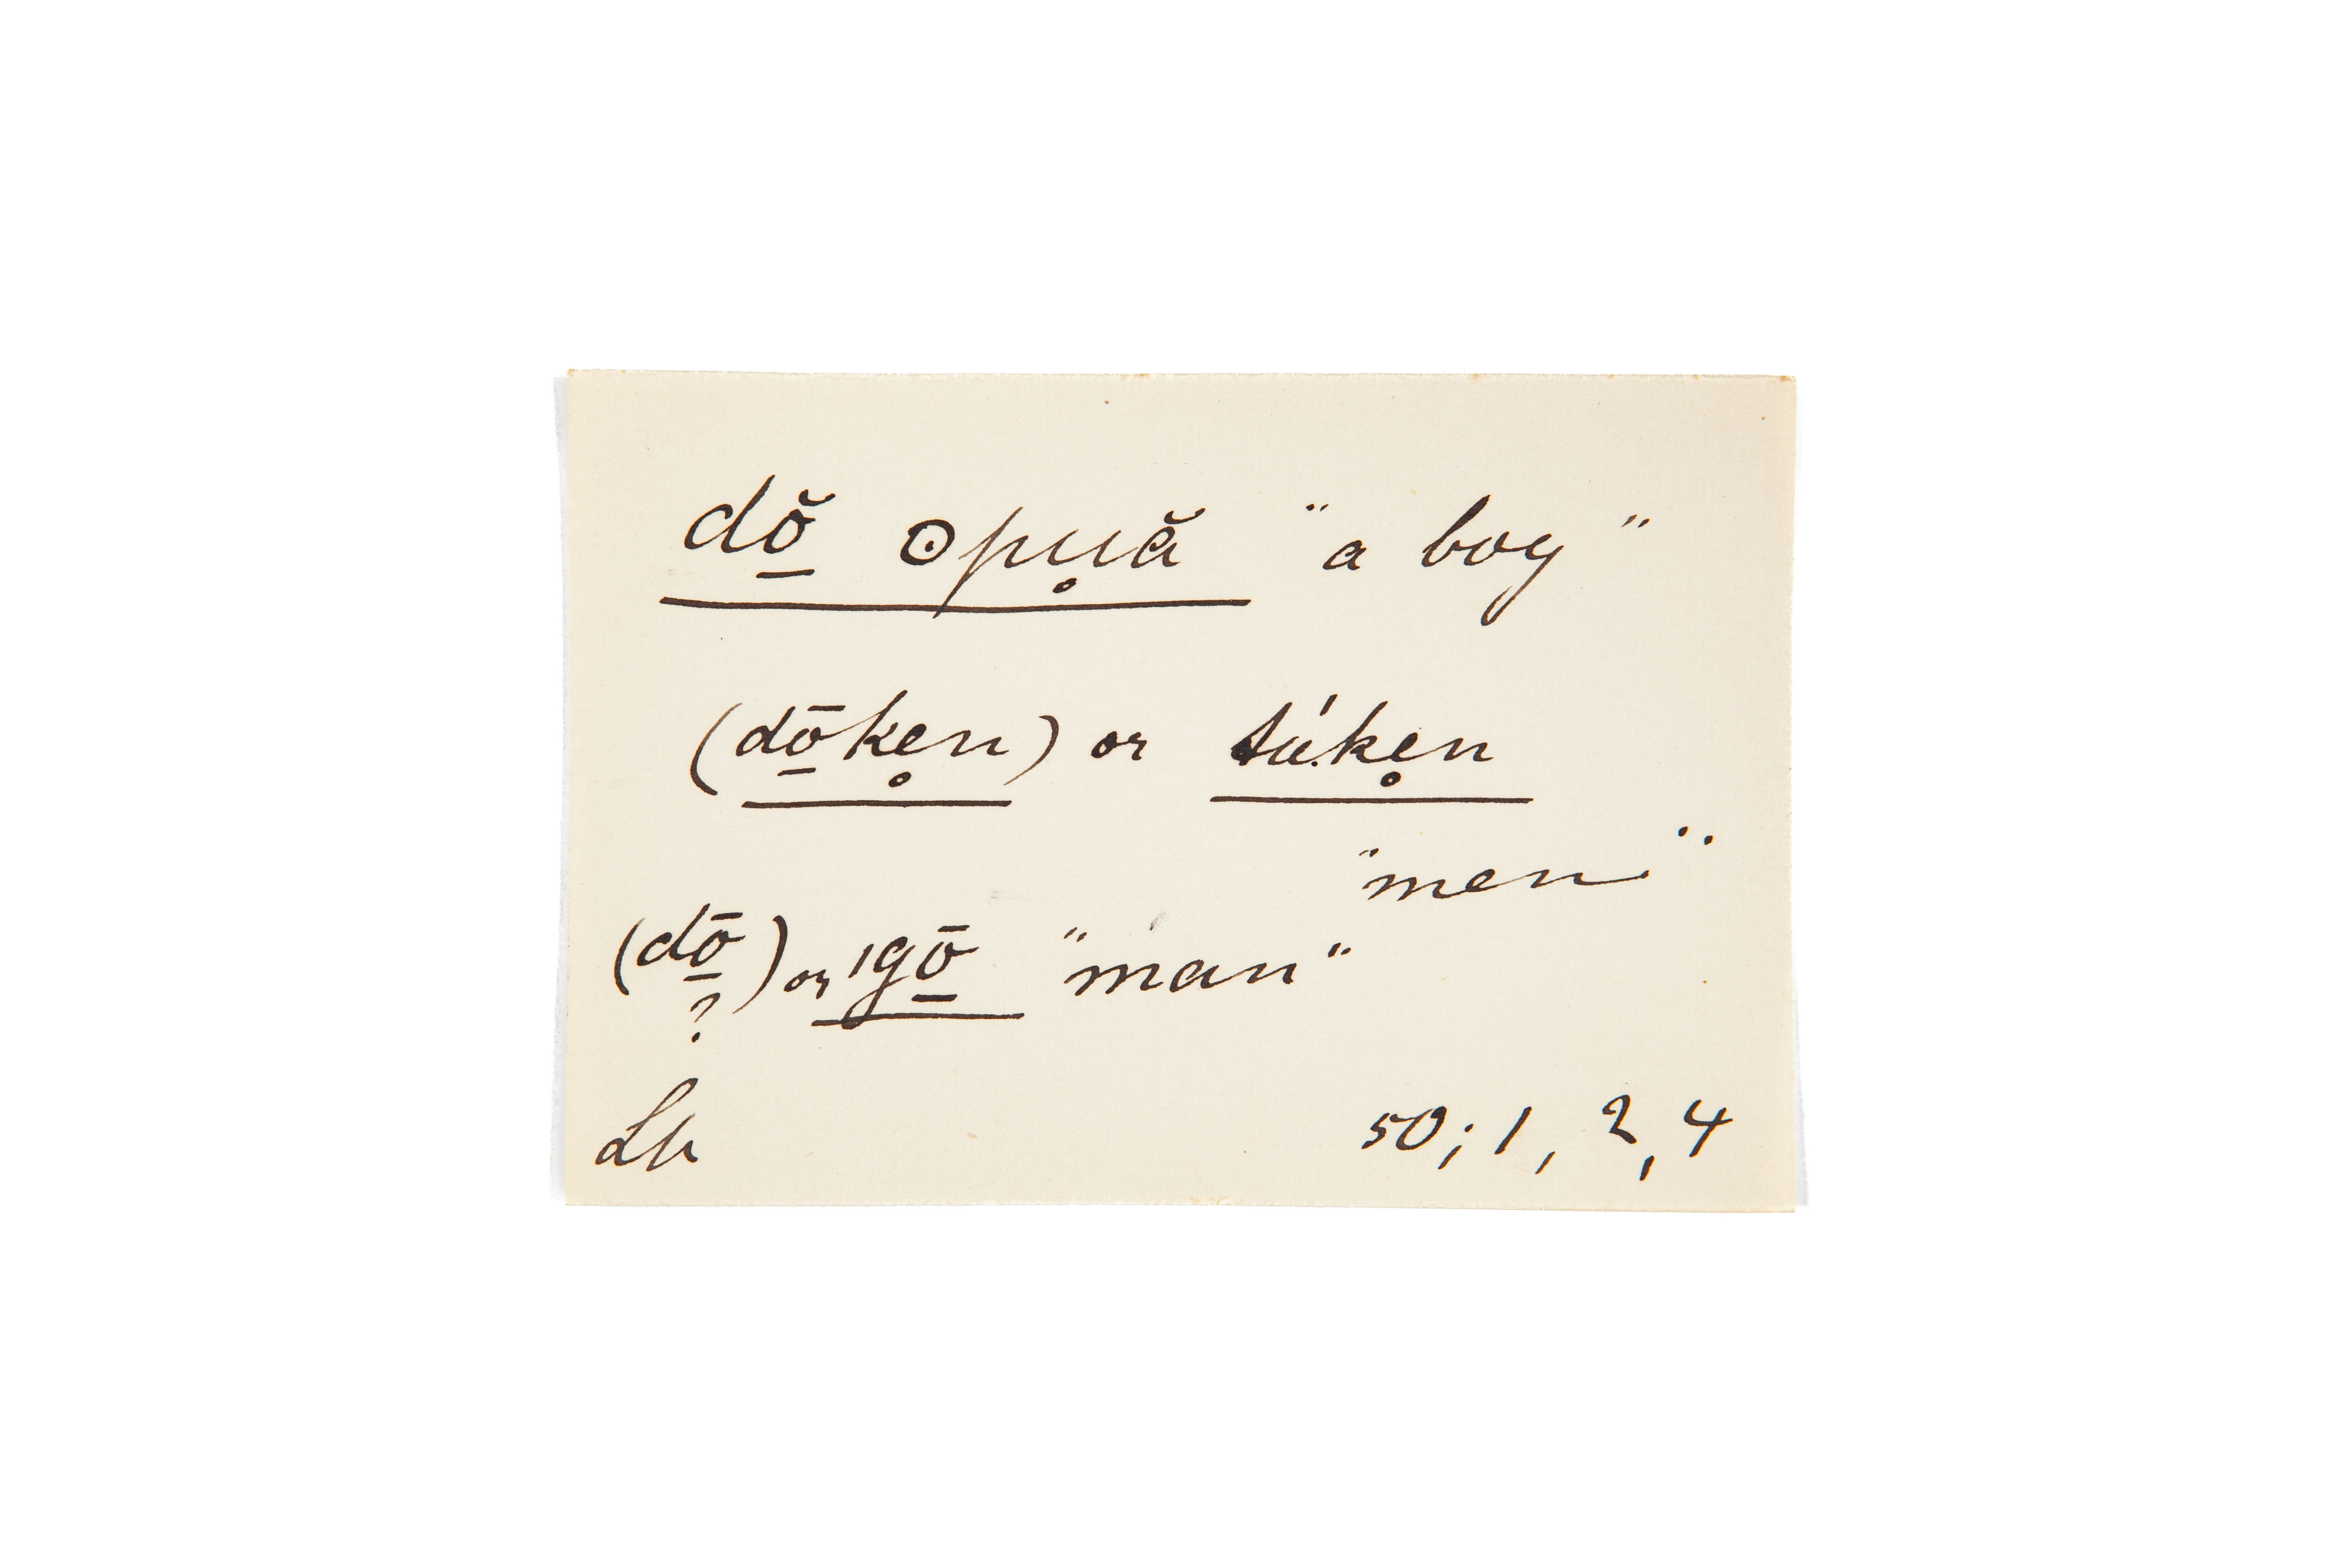 dō̱̆ ʘpu̥ă "a boy"
(dō̱ke̥n) or túke̥n
"men"
(dō̱) or ǀgō̱ "man"
?
Lb 50; 1, 2, 4